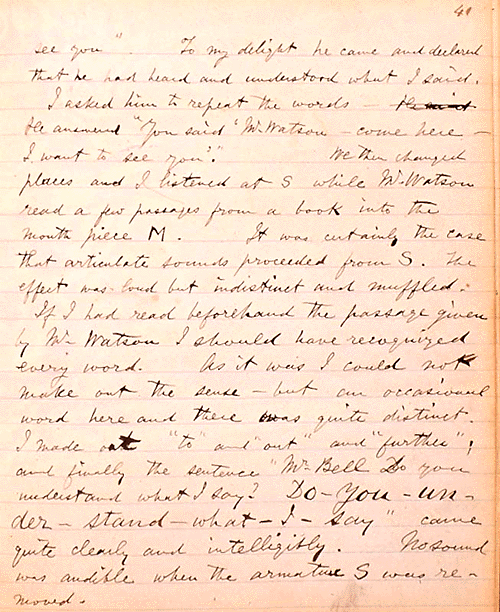 41
see you". To my delight he came and declared
that he had heard and understood what I said.
I asked him to repeat the words —
He answered "You said 'Mr. Watson — come here —
I want to see you'." We then changed
places and I listened at S while Mr. Watson
read a few passages from a book into the
mouth piece M. It was certainly the case
that articulate sounds proceeded from S. The
effect was loud but indistinct and muffled.
If I had read beforehand the passage given
by Mr. Watson I should have recognized
every word. As it was I could not
make out the sense — but an occasional
word here and there was quite distinct.
I made out "to" and "out" and "further";
and finally the sentence "Mr. Bell Do you
understand what I say? Do–You–un–
der–stand–what–I–say" came
quite clearly and intelligibly. No sound
was audible when the armature S was re–
moved.